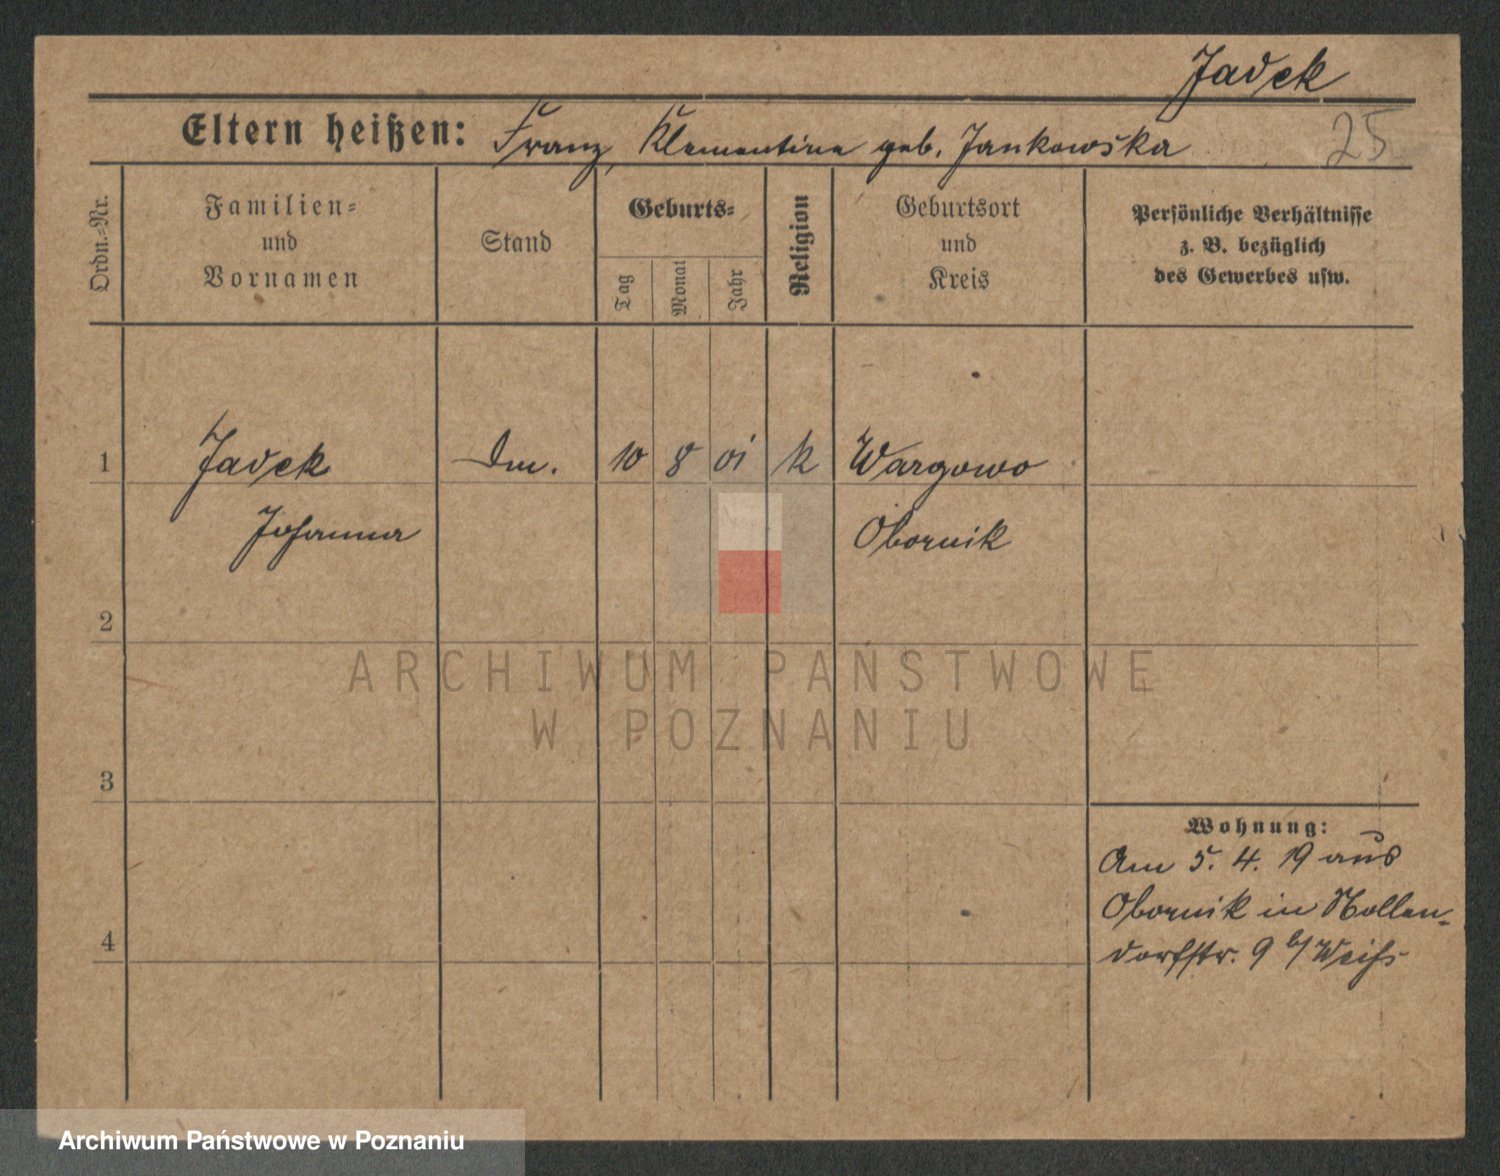 Jadek
25
Eltern heißen: Franz, Klementine geb. Jankowska
Ordn.-Nr.
Familien-
und
Vornamen
Stand
Geburts-
Tag
Monat
Jahr
Religion
Geburtsort
und
Kreis
Persönliche Verhältnisse
z. B. bezüglich
des Gewerbes usw.
1 Jadek Dm. 10 8 01 k Wargowo
Johanna Obornik
2
3
4
Wohnung:
Am 5. 4. 19 aus
Obornik in Nollen-
dorfstr. 9 b/ Weiss
ARCHIWUM PAŃSTWOWE
W POZNANIU
Archiwum Państwowe w Poznaniu